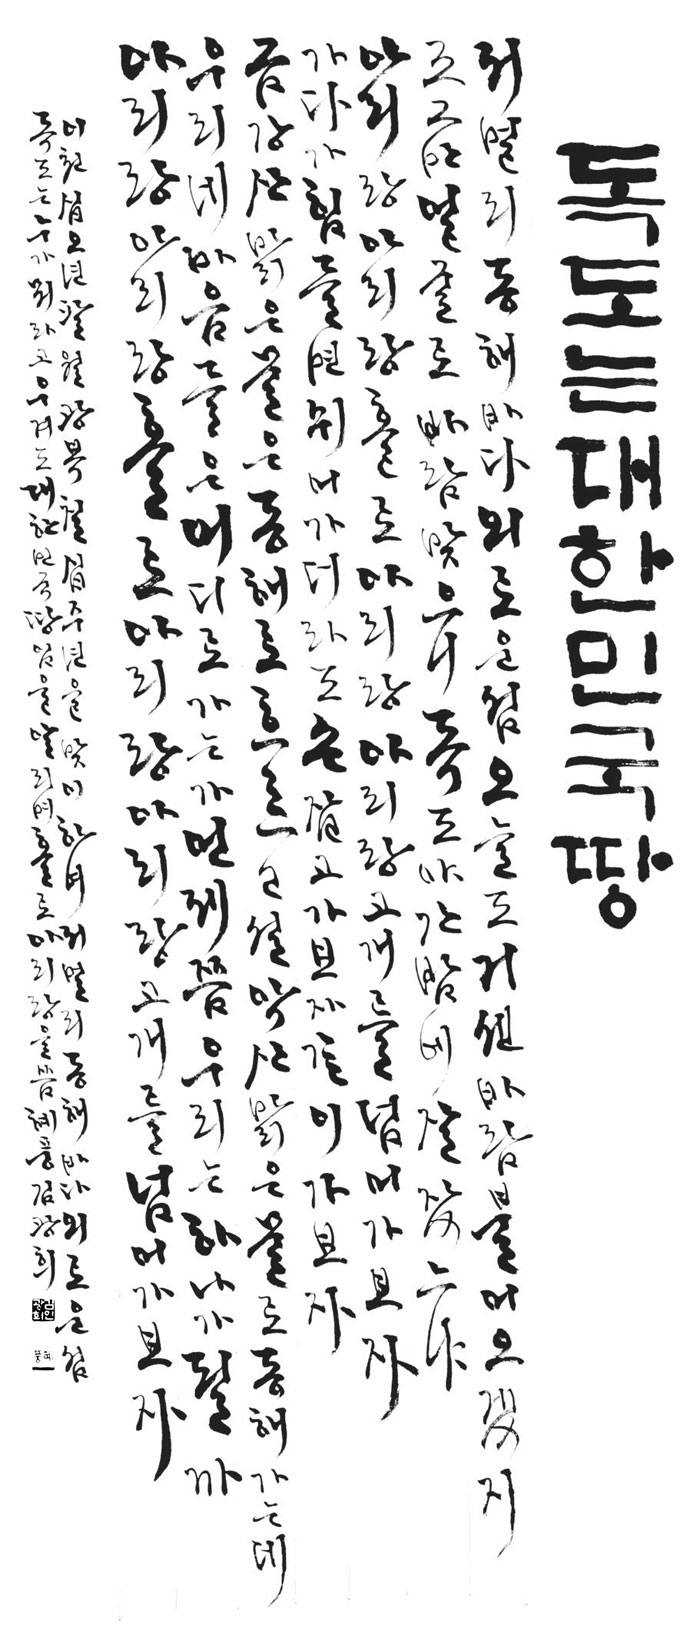 독도는대한민국땅
저멀리동해바다외로운섬오늘도거센바람불어오겠지
조그만얼굴로바람맞으니독도야간밤에잘잤느냐
아리랑아리랑홀로아리랑아리랑고개를넘어가보자
가다가힘들면쉬어가더라도손잡고가보자같이가보자
금강산맑은물은동해로흐르고설악산맑은물도동해가는데
우리네마음들은어디로가는가언제쯤우리는하나가될까
아리랑아리랑홀로아리랑아리랑고개를넘어가보자
이천십오년팔월광복칠십주년을맞이하여저멀리동해바다외로운섬
독도는누가뭐라고우겨도대한민국땅임을알리며홀로아리랑을씀혜풍김광희
혜풍